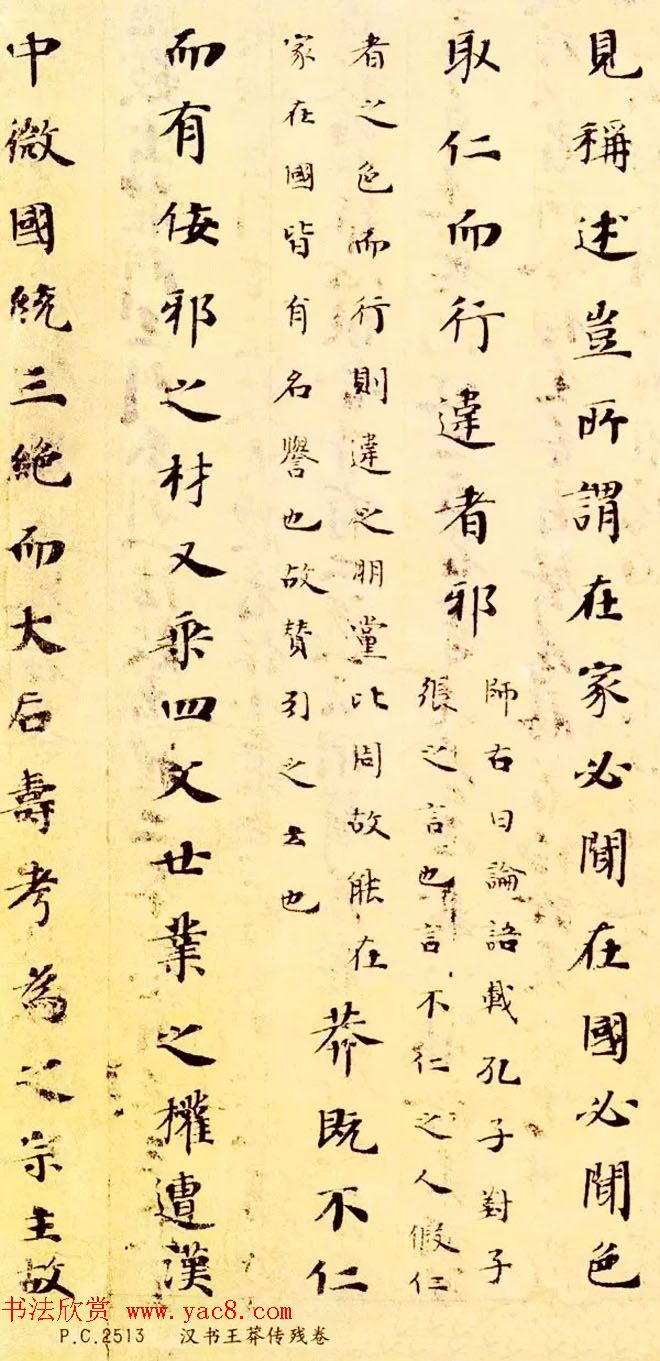 見稱述豈所謂在家必聞在國必聞色
取仁而行違者邪
師古曰論語載孔子對子
張之言也言不仁之人假仁
者之色而行則違之朋黨比周故能在
家在國皆有名譽也故贊引之云也
莽既不仁
而有佞邪之材又乘四父世業之權遭漢
中微國統三絕而大后壽考為之宗主故
书法欣赏 www.yac8.com
P.C.2513 汉书王莽传残卷